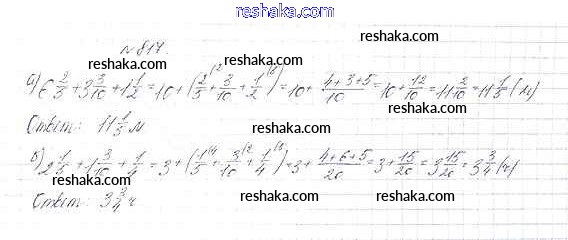 www.reshaka.com
№ 817.
reshaka.com
а) 6 2/5 + 3 3/10 + 1 1/2 = 10 + (2/5^(2 + 3/10 + 1/2^(5) = 10 + (4+3+5)/10 = 10 + 12/10 = 11 2/10 = 11 1/5 (м)
reshaka.com reshaka.com reshaka.com
Ответ: 11 1/5 м
reshaka.com reshaka.com
б) 2 1/5 + 1 3/10 + 1/4 = 3 + (1/5^(4 + 3/10^(2 + 1/4^(5) = 3 + (4+6+5)/20 = 3 + 15/20 = 3 15/20 = 3 3/4 (ч)
reshaka.com reshaka.com reshaka.com
Ответ: 3 3/4 ч
reshaka.com
reshaka.com